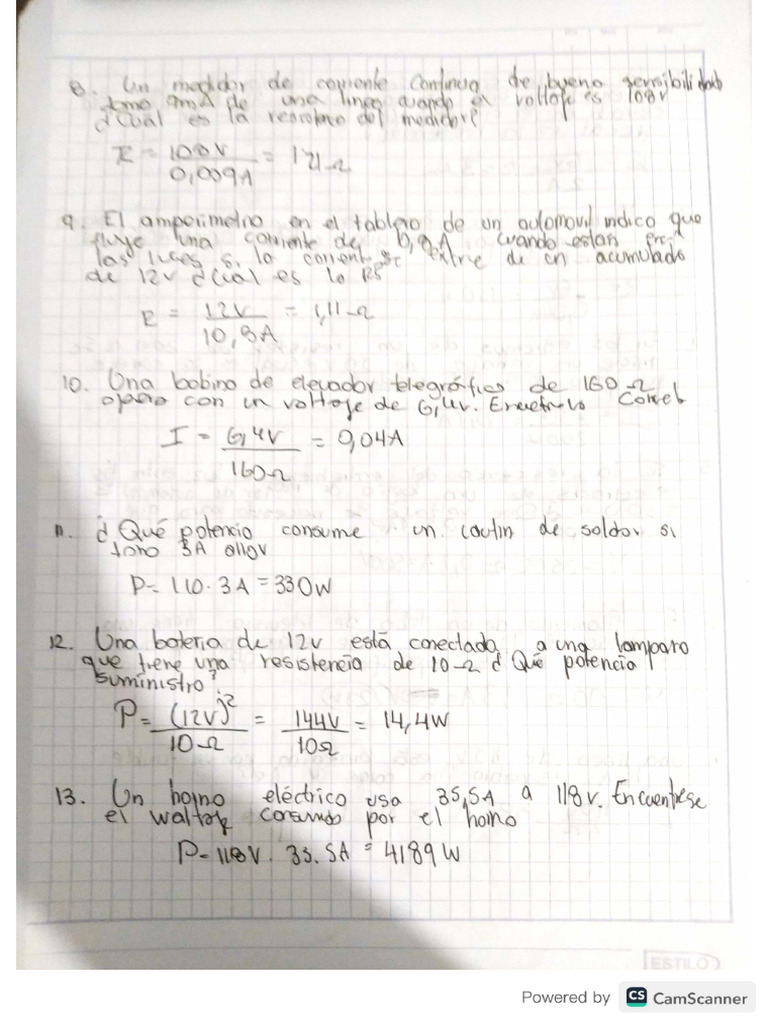 8. Un medidor de corriente continua de buena sensibilidad
tomo 9mA de una linea cuando el voltaje es 108v
¿Cual es la del medidor?
R = 108V / 0,009A = 121Ω
9. El amperimetro en el tablero de un automovil indica que
fluye una corriente de 10,8A cuando estan
las luces si la corriente se extrae de un acumulado
de 12v ¿Cual es la
R = 12V / 10,8A = 1,11Ω
10. Una bobina de elevador telegráfico de 160Ω
opera con un voltaje de 6,4v.
I = 6,4V / 160Ω = 0,04A
11. ¿Qué potencia consume un cautin de soldar si
toma 3A a 110v
P= 110 · 3A = 330W
12. Una bateria de 12v está conectada a una lampara
que tiene una resistencia de 10Ω ¿Qué potencia
suministro?
P= (12V)² / 10Ω = 144V / 10Ω = 14,4W
13. Un horno eléctrico usa 35,5A a 118v. Encuentrese
el por el horno
P= 118V · 35.5A = 4189W
ESTILO
Powered by CS CamScanner